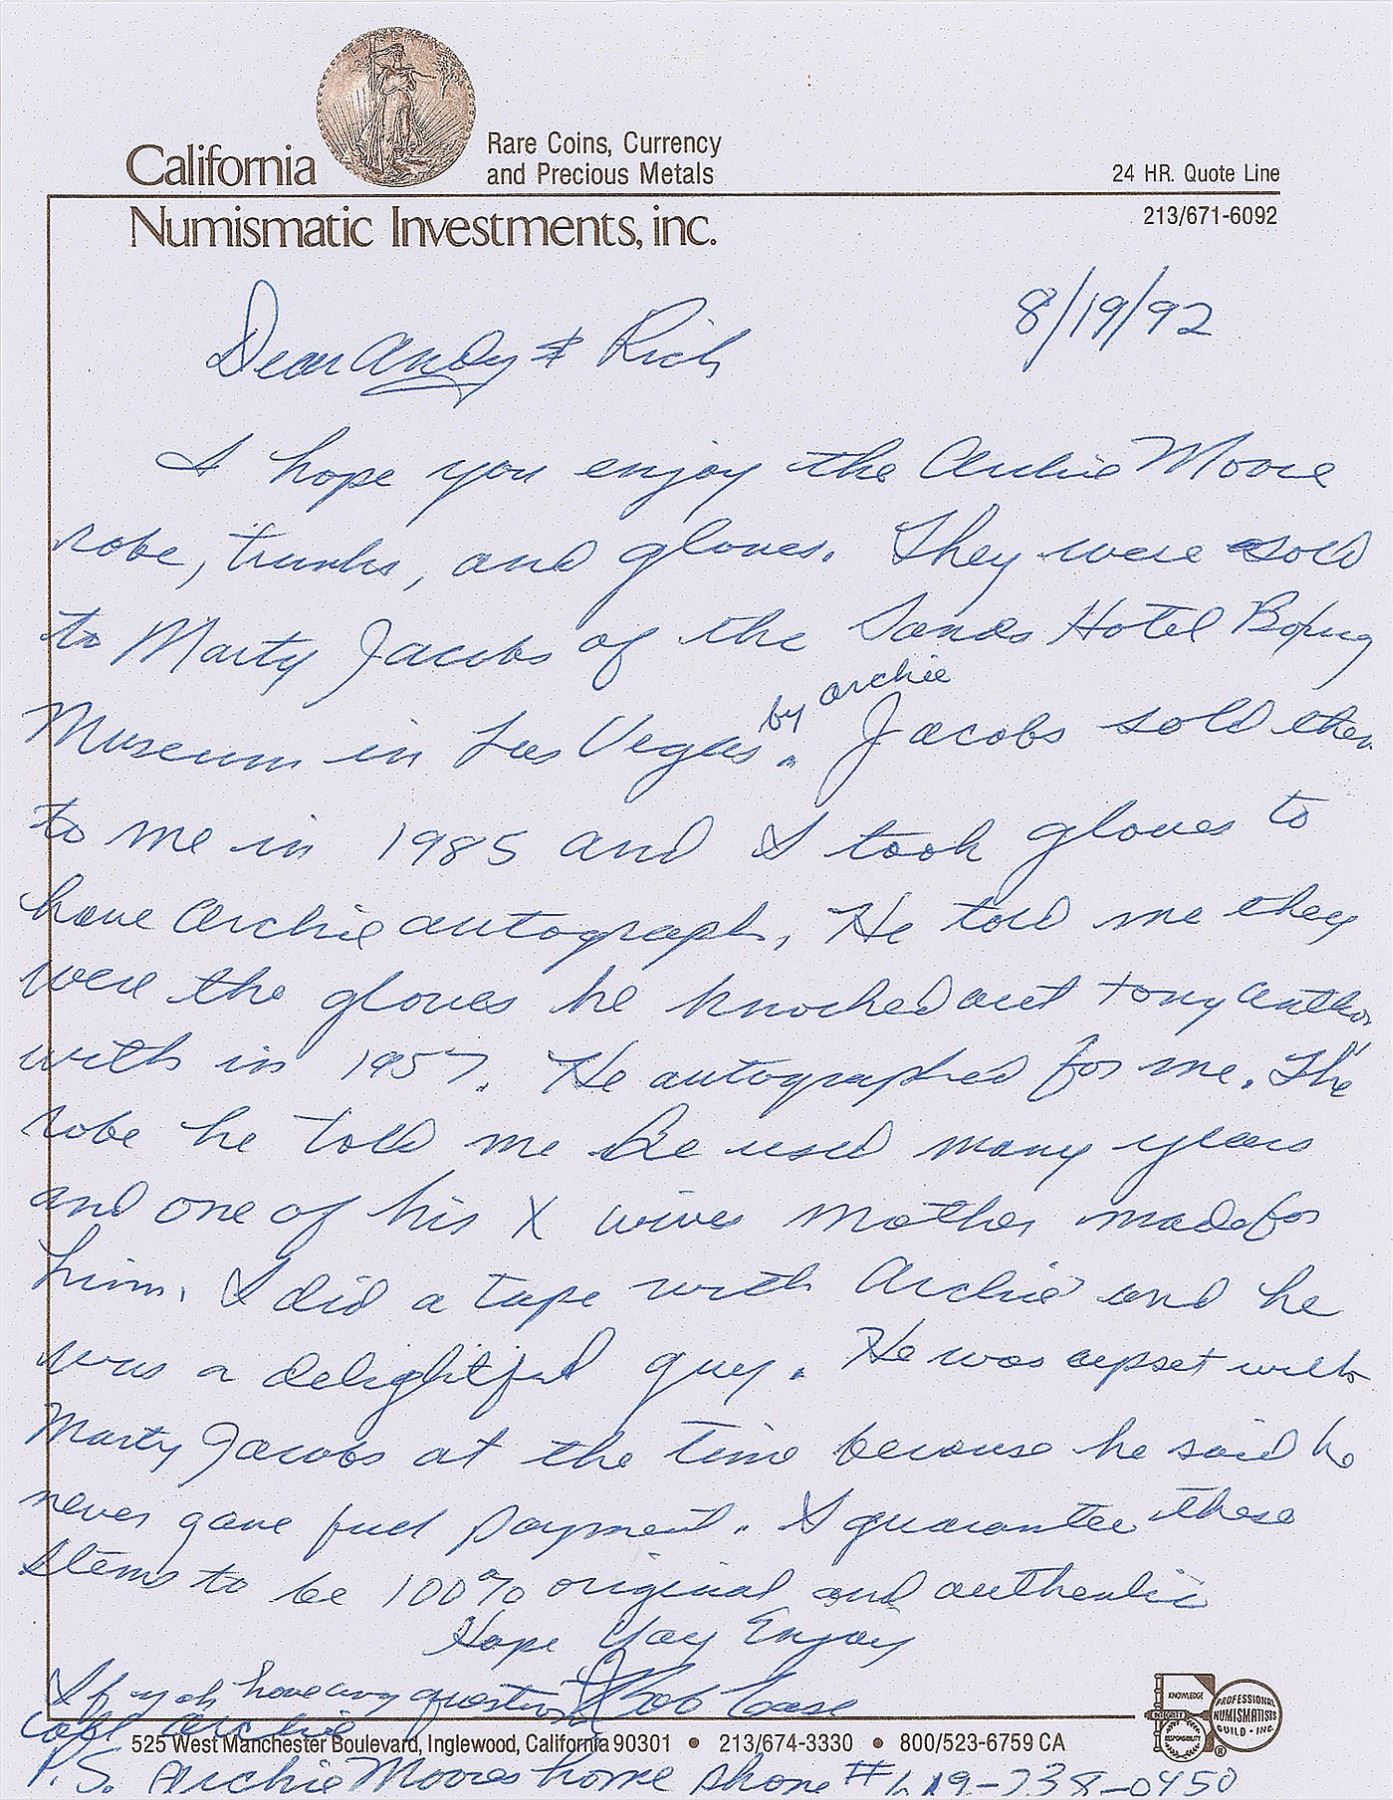 California
Rare Coins, Currency
and Precious Metals
24 HR. Quote Line
Numismatic Investments, inc.
213/671-6092
8/19/92
Dear Andy & Rich
I hope you enjoy the Archie Moore
robe, trunks, and gloves. They were sold
to Marty Jacobs of the Sands Hotel Boxing
by archie
Museum in Las Vegas. Jacobs sold them
to me in 1985 and I took gloves to
have Archie autograph. He told me they
were the gloves he knocked out Tony Anthony
with in 1957. He autographed for me. The
robe he told me he used many years
and one of his X wives mother made for
him. I did a tape with Archie and he
was a delightful guy. He was upset with
Marty Jacobs at the time because he said he
never gave full payment. I guarantee these
items to be 100% original and authentic
Hope You Enjoy
If you have any questions Bob
call Archie
525 West Manchester Boulevard, Inglewood, California 90301 • 213/674-3330 • 800/523-6759 CA
P.S. Archie Moores home phone # 619-738-0450
KNOWLEDGE
INTEGRITY
RESPONSIBILITY
PROFESSIONAL
NUMISMATISTS
GUILD • INC.